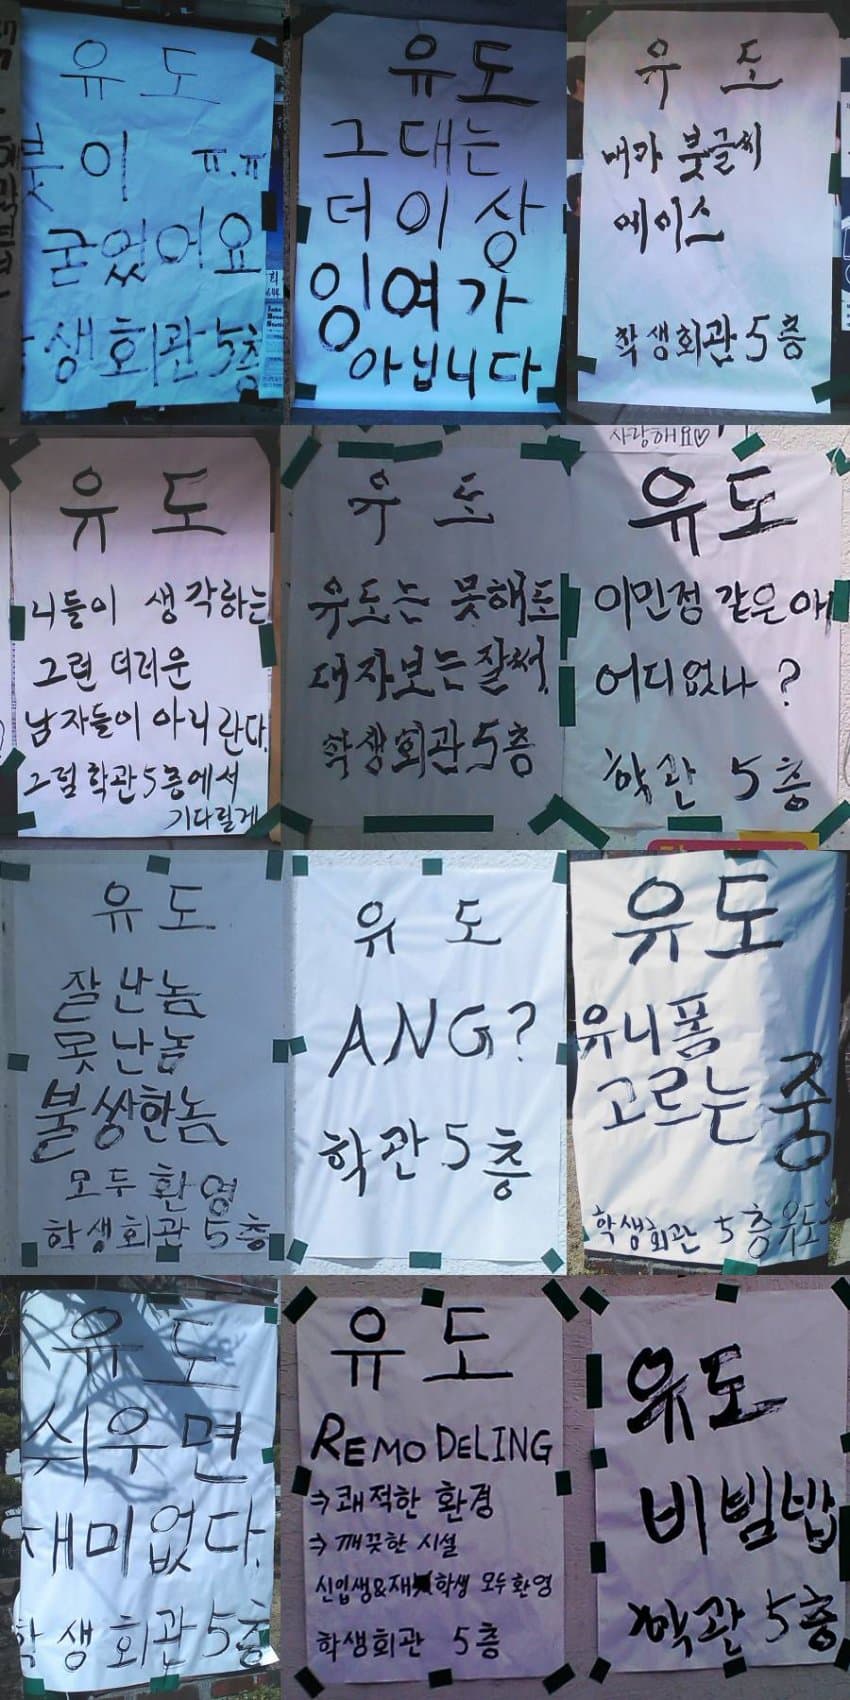 유도
붓이 ㅠ.ㅠ
굳었어요
학생회관 5층
유도
그대는
더 이상
잉여가
아닙니다
유도
내가 붓글씨
에이스
학생회관 5층
유도
니들이 생각하는
그런 더러운
남자들이 아니란다.
그럼 학관 5층에서
기다릴게
사랑해요♡
유도
유도는 못해도
대자보는 잘써.
학생회관 5층
유도
이민정 같은 애
어디 없나 ?
학관 5층
유도
잘난놈
못난놈
불쌍한놈
모두 환영
학생회관 5층
유도
ANG?
학관 5층
유도
유니폼
고르는 중
학생회관 5층 유도
유도
쉬우면
재미없다.
학생회관 5층
유도
REMODELING
⇒ 쾌적한 환경
⇒ 깨끗한 시설
신입생&재학생 모두 환영
학생회관 5층
유도
비빔밥
학관 5층